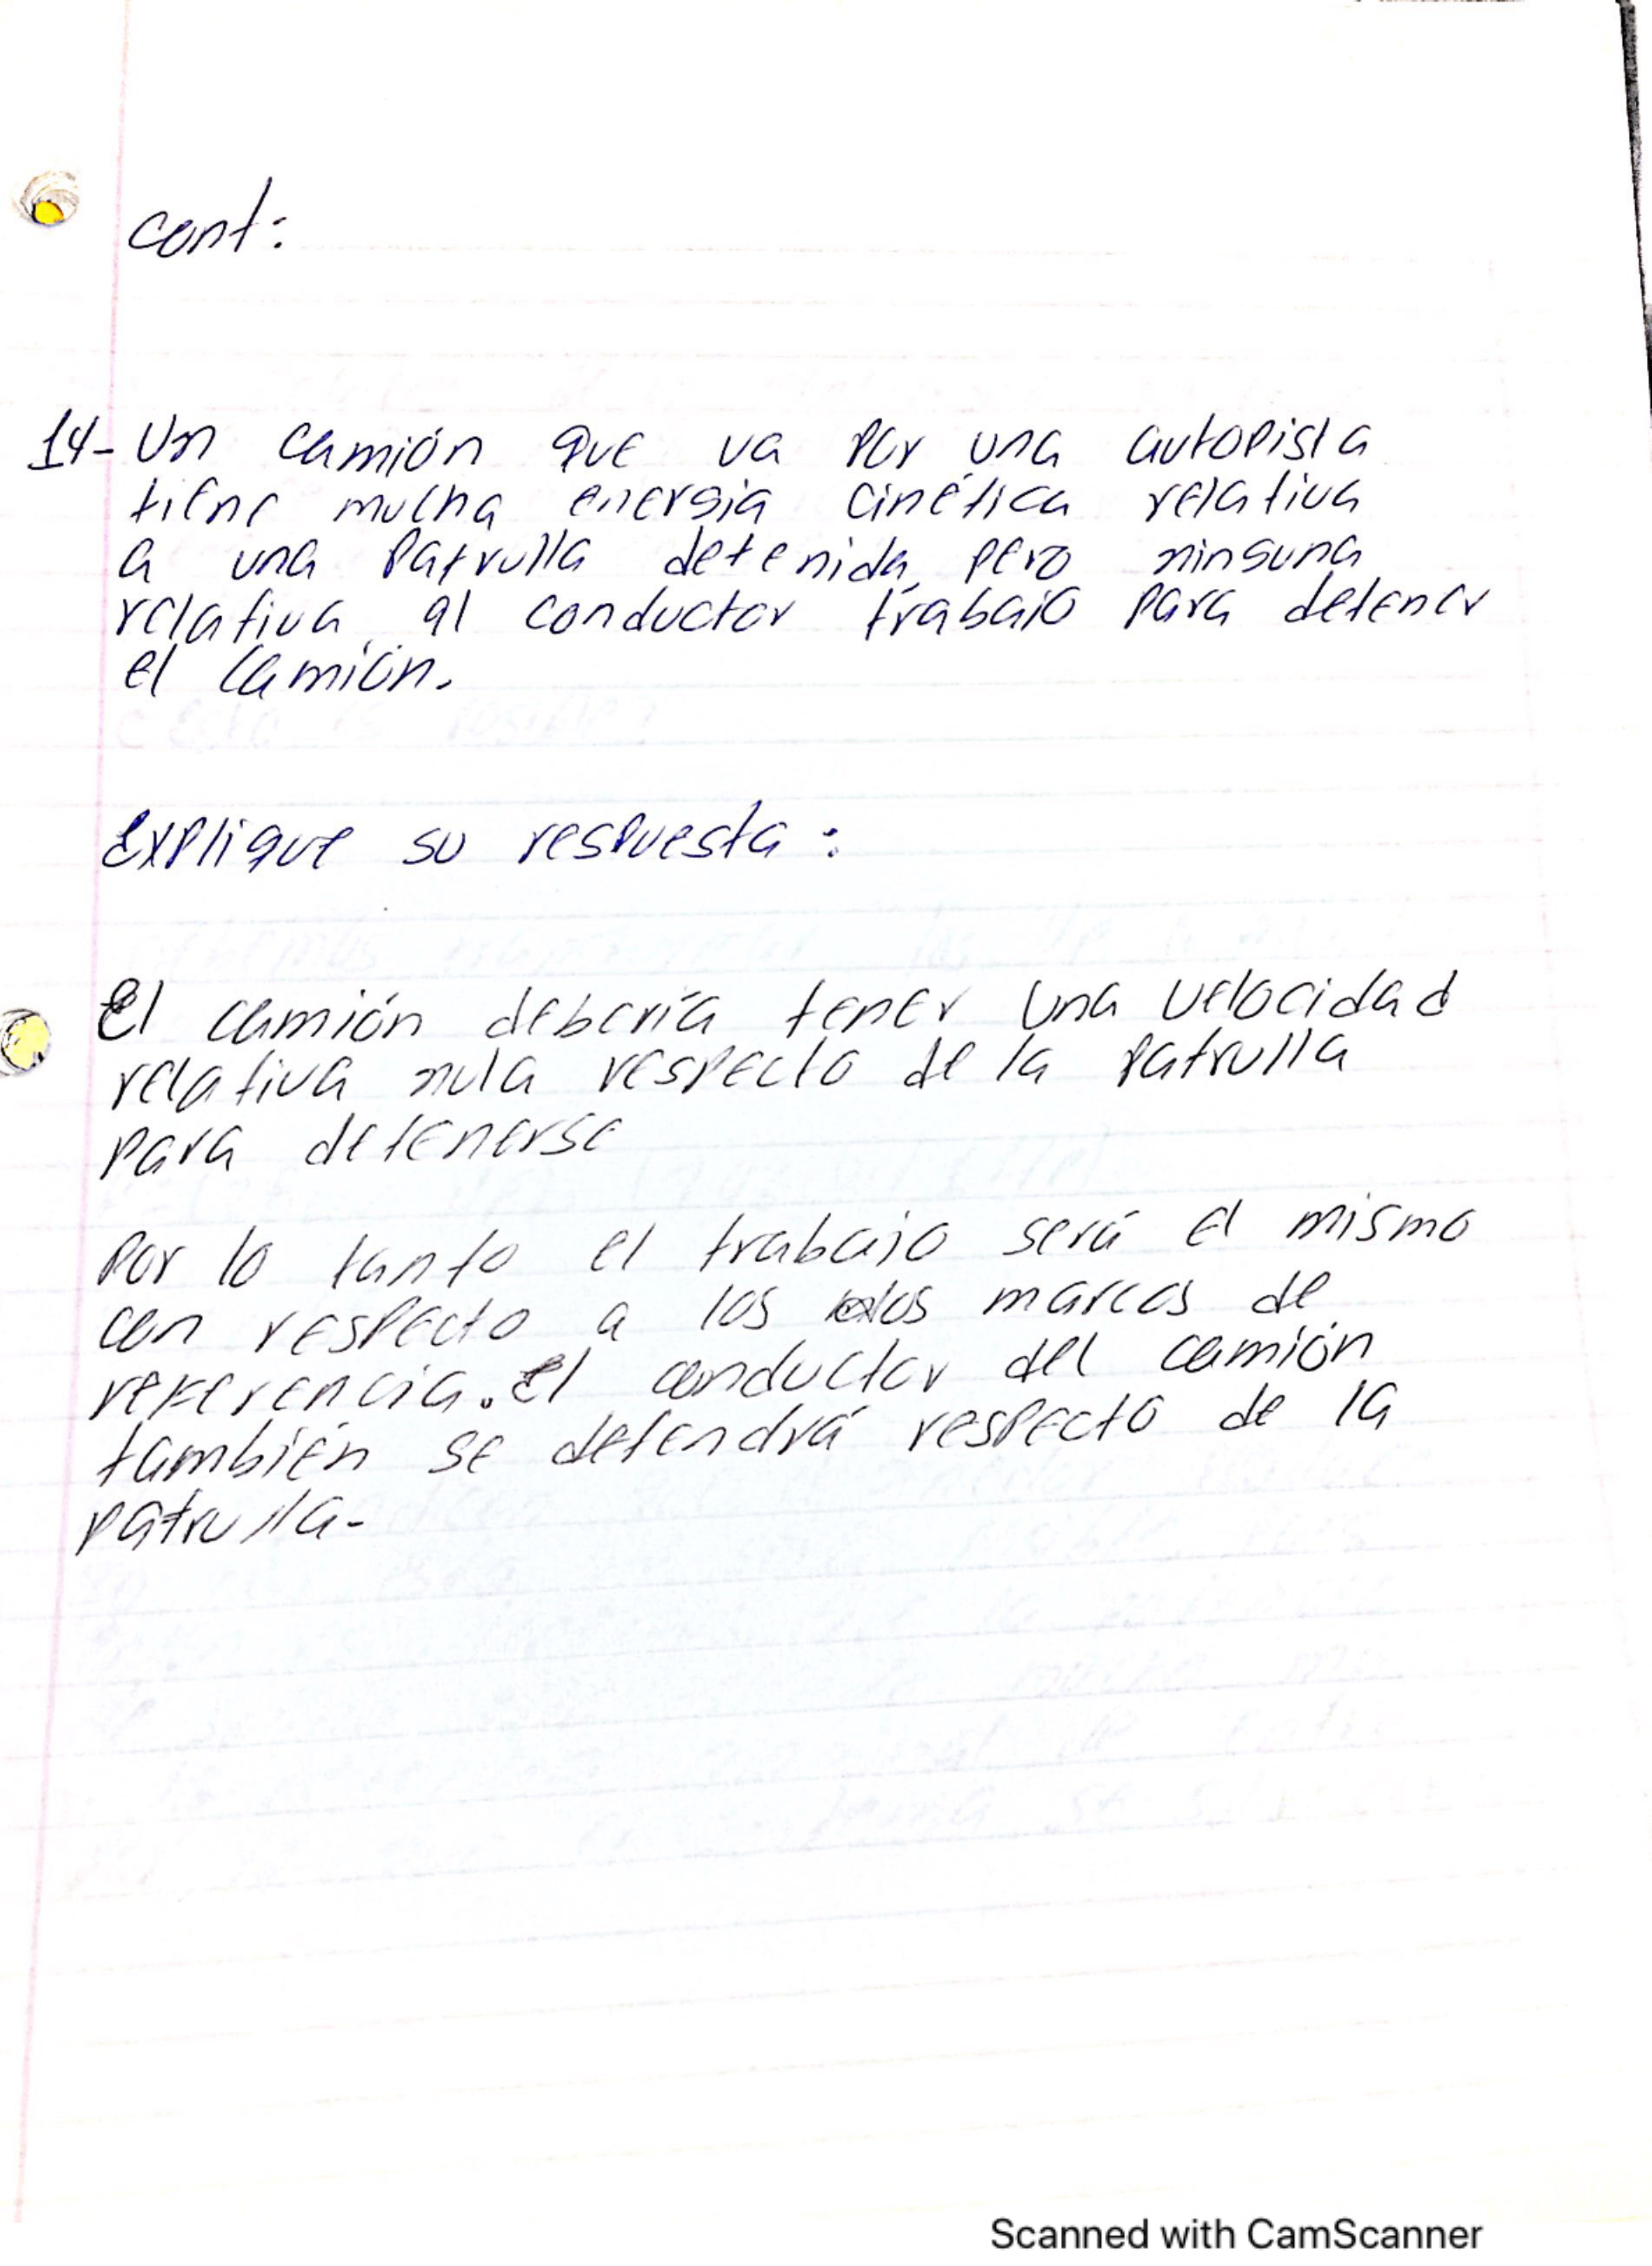 cont:
14- Un camión que va por una autopista
tiene mucha energia cinética relativa
a una patrulla detenida, pero ninguna
relativa al conductor trabajo para detener
el camión.
Explique su respuesta:
El camión debería tener una velocidad
relativa nula respecto de la patrulla
para detenerse
por lo tanto el trabajo será el mismo
con respecto a los dos marcos de
referencia. El conductor del camión
también se detendrá respecto de la
patrulla-
Scanned with CamScanner